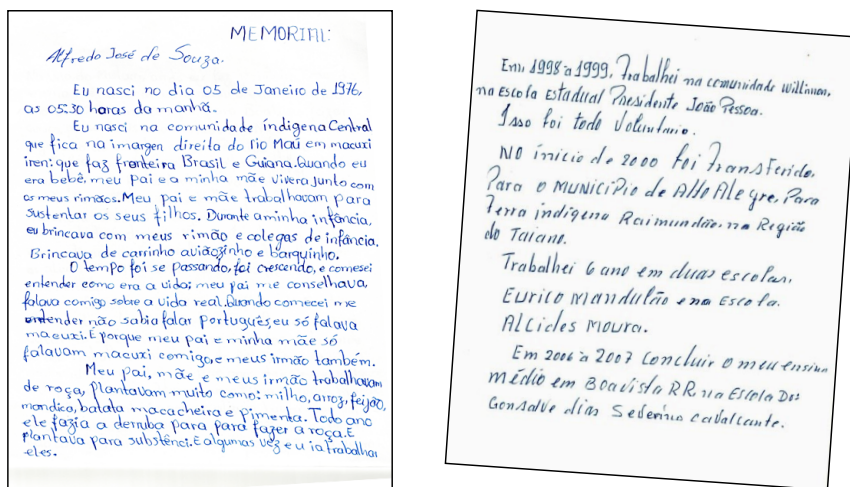 MEMORIAL:
Alfredo José de Souza.
Eu nasci no dia 05 de Janeiro de 1976,
as 05:30 horas da manhã.
Eu nasci na comunidade indígena Central
que fica na imargen direita do Rio Maú em macuxi
iren: que faz fronteira Brasil e Guiana. Quando eu
era bebê. meu pai e a minha mãe vivera junto com
os meus rimãos. Meu pai e mãe trabalhavam para
sustentar os seus filhos. Durante a minha infância,
eu brincava com meus rimão e colegas de infância.
Brincava de carrinho aviãozinho e barquinho.
O tempo foi se passando, foi crescendo, e comesei
entender como era a vida; meu pai me conselhava,
falava comigo sobre a vida real. Quando comecei me
entender não sabia falar português, eu só falava
macuxi. E porque meu pai e minha mãe só
falavam macuxi comigo, e meus irmão também.
Meu pai, mãe e meus irmão trabalhavam
de roça, plantavam muito como: milho, arroz, feijão,
mandica, batata macacheira e pimenta. Todo ano
ele fazia a derruba para para fazer a roça. E
plantava para substênci. E algumas vez eu ia trabalha
eles.
Em 1998 a 1999, Trabalhei na comunidade Willimon,
na Escola Estadual Presidente João Pessoa.
Isso foi todo Voluntario.
NO início de 2000 foi Transferido,
Para o MUNICÍPIO de Alto Alegre, Para
Terra indígena Raimundão, na Região
do Taiano.
Trabalhei 6 ano em duas escolas.
Eurico Mandulão e na Escola.
Alcides Moura.
Em 2006 a 2007 Concluir o meu ensino
médio em Boavista RR. na Escola Dos
Gonsalve dias Severino Cavalcante.